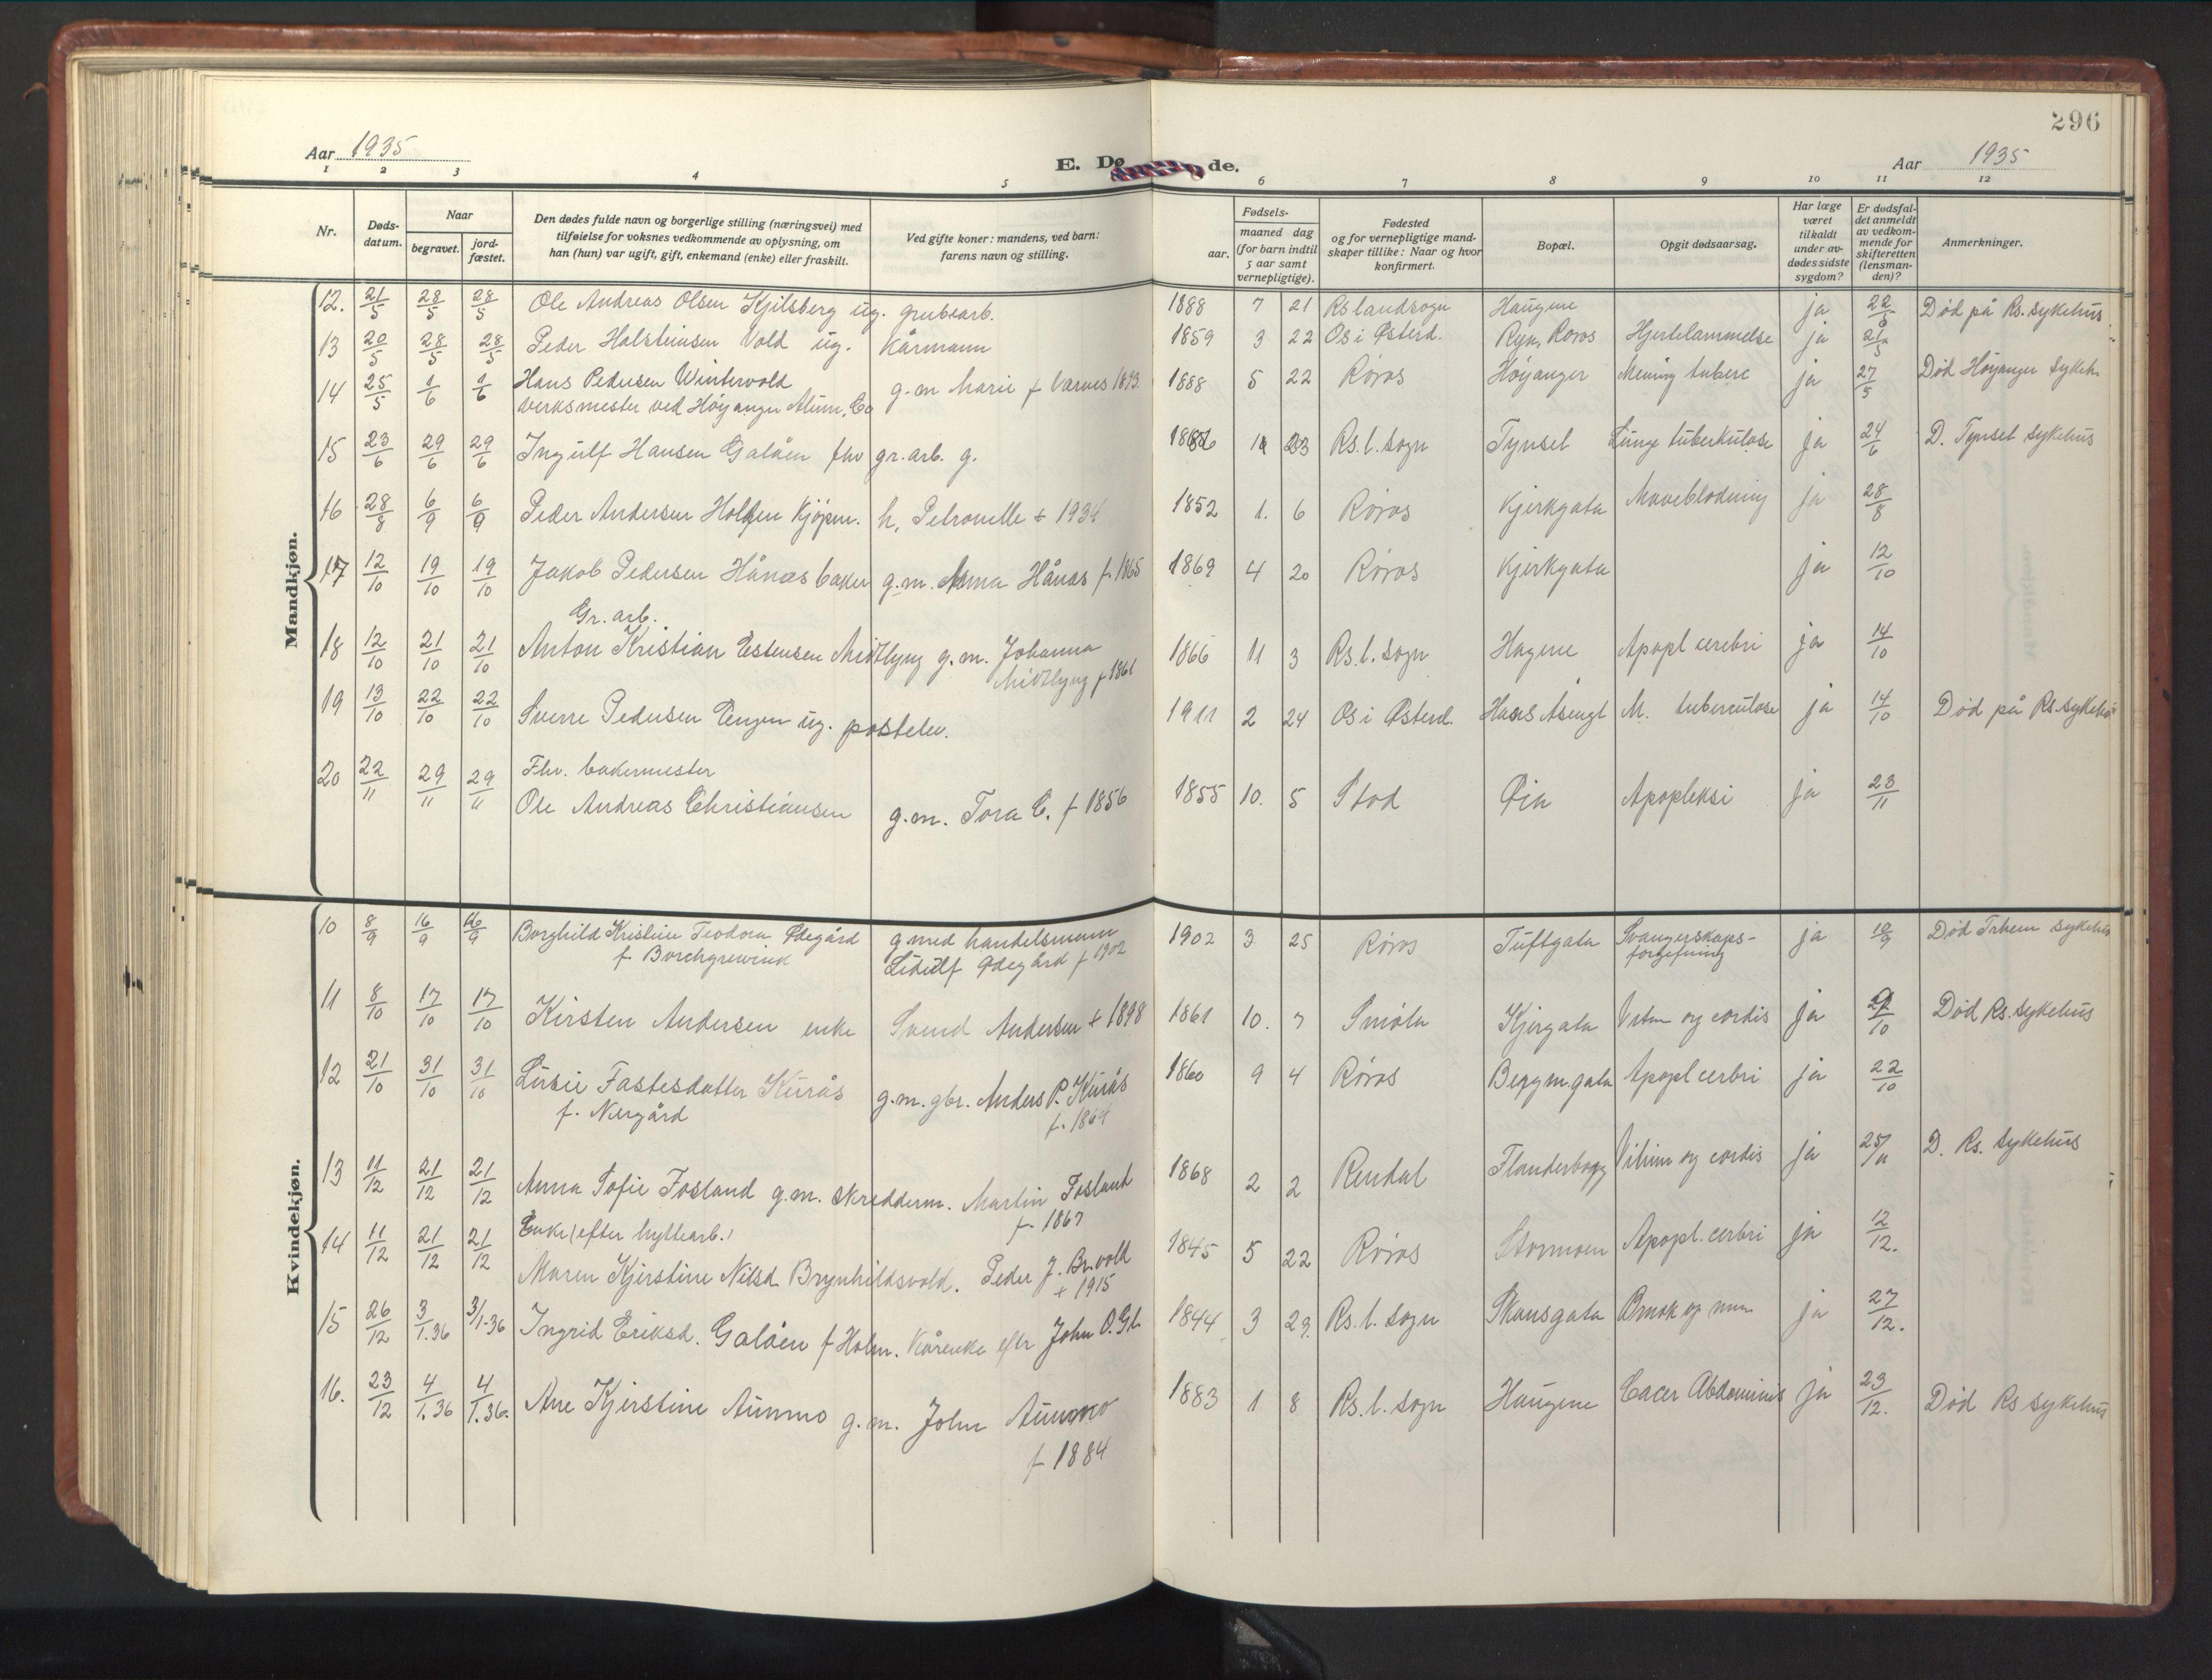 296
Aar 1935
E. Dø de.
Aar 1935
1 2 3 4 5 6 7 8 9 10 11 12
Nr.
Døds-
datum.
Naar
begravet.
jord-
fæstet.
Den dødes fulde navn og borgerlige stilling (næringsvei) med
tilføielse for voksnes vedkommende av oplysning, om
han (hun) var ugift, gift, enkemand (enke) eller fraskilt.
Ved gifte koner: mandens, ved barn:
farens navn og stilling.
Fødsels-
aar.
maaned dag
(for barn indtil
5 aar samt
vernepligtige).
Fødested
og for vernepligtige mand-
skaper tillike: Naar og hvor
konfirmert.
Bopæl.
Opgit dødsaarsag.
Har læge
været
tilkaldt
under av-
dødes sidste
sygdom?
Er dødsfal-
det anmeldt
av vedkom-
mende for
skifteretten
(lensman-
den)?
Anmerkninger.
Mandkjøn.
12. 21/5 28/5 28/5 Ole Andreas Olsen Kjilsberg ug. grubearb. 1888 7 21 Rs landsogn Haugene ja 22/5 Død på Rs. sykehus
13 20/5 28/5 28/5 Peder Holsteinsen Vold ug. Kårmann 1859 3 22 Os i Østerd. Røros Hjertelammelse ja 21/5
14 25/5 1/6 1/6 Hans Pedersen Wintervold g. m Marie f Varnes 1893. 1888 5 22 Røros Høyanger Mening tuberc ja 27/5 Død Høyanger Sykeh
verksmester ved Høyanger Alum. Co
15 23/6 29/6 29/6 Ingulf Hansen Galåen fhv gr. arb. g. 23 Rs. l. sogn Tynset Lunge tuberkulose ja 24/6 D. Tynset sykehus
16 28/8 6/9 6/9 Peder Andersen Kjøpm. h, Petronelle + 1934 1852 1. 6 Røros Kjerkgata Maveblødning ja 28/8
17 12/10 19/10 19/10 Jakob Pedersen Hånæs baker g. m. Anna Hånæs f. 1865 1869 4 20 Røros Kjerkgata ja 12/10
Gr. arb.
18 12/10 21/10 21/10 Anton Kristian Estensen Midtlyng g. m. Johanna 1866 11 3 Rs. l. sogn Hagene Apopl cerebri ja 14/10
Midtlyng f 1861
19 13/10 22/10 22/10 Sverre Pedersen Engen ug. postelev. 1911 2 24 Os i Østerd Hans Aasengt M. tuberculose ja 14/10 Død på Rs. sykehus
20 22/11 29/11 29/11 Fhv. bakermester
Ole Andreas Christiansen g. m. Tora C. f 1856 1855 10. 5 Stod Øra Apopleksi ja 23/11
Kvindekjøn.
10 8/9 16/9 16/9 Borghild Kristine Teodora Ødegård g med handelsmann 1902 3 25 Røros Tuftgata Svangerskaps- ja 10/9 Død Trhem sykehus
f. Borchgrewink Lidulf Ødegård f 1902 forgiftning
11 8/10 17/10 17/10 Kirsten Andersen enke Svend Andersen + 1898 1861 10. 7 Smøla Kjergata Vitium og cordis ja 10 Død Rs. sykehus
12 21/10 31/10 31/10 Lusie Fastesdatter Kurås g. m. gbr. Anders P. Kurås 1860 9 4 Røros Bergm. gata Apopl cerbri ja 22/10
f. Nergård f. 1864
13 11/12 21/12 21/12 Anna Sofie Fosland g. m. skredderm. Martin Fosland 1868 2 2 Rendal Flanderborg Vitium og cordis ja 25/11 D. Rs. Sykehus
f. 1867
14 11/12 21/12 21/12 Enke (efter hyttearb.)
Maren Kjerstine Nilsd. Brynhildsvold. Peder J. Br.vold 1845 5 22 Røros Stormoen Apopl. cerbri ja 12/12.
+ 1915
15 26/12 3/1.36 3/1-36 Ingrid Eriksd. Galåen f Holm. Kårenke efter John O. Gl. 1844 3 29. Rs. l. sogn Skansgata ja 27/12.
16. 23/12 4/1.36 4/1.36. Ane Kjerstine Aunmo g. m. John Aunmo 1883 1 8 Rs. l. sogn Haugene Cacer Abdominis ja 23/12. Død Rs sykehus
f 1884